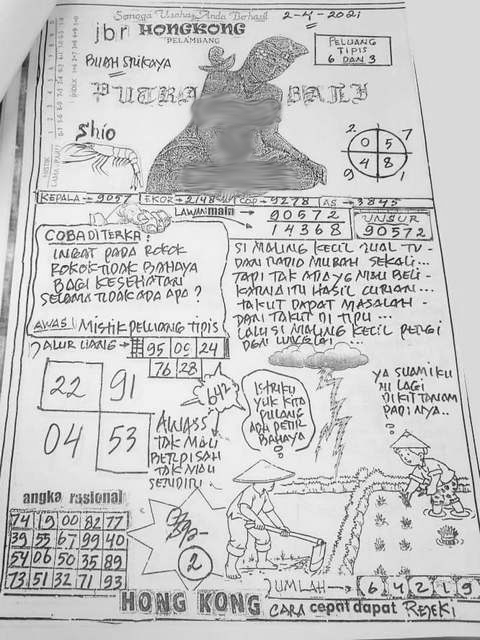 Sangga Usaha Anda Berhasil
2-4-2021
jbr HONGKONG
PELAMBANG
PELUANG
TIPIS
6 DAN 3
BUAH SRIKAYA
PUTRA BALI
Shio
2 7
0 5
4 8
9 1
KEPALA → 9057 EKOR → 2148 COP → 9278 AS → 3845
LAWAN main → 90572
→ 14368
UNSUR
90572
COBA DITERKA:
INGAT PADA ROKOK
ROKOK TIDAK BAHAYA
BAGI KESEHATAN
SELAMA TIDAK ADA APA?
AWAS! MISTIK PELUANG TIPIS
SI MALING KECIL JUAL TV
DAN RADIO MURAH SEKALI...
TAPI TAK ADA YG MAU BELI -
KARNA ITU HASIL CURIAN...
TAKUT DAPAT MASALAH -
DAN TAKUT DI TIPU...
LALU SI MALING KECIL PERGI
JALUR UANG → 95 05 24
76 28
642
22 91
04 53
AWASS
TAK MAU
BERPISAH
TAK MAU
SENDIRI
ISTRIKU
YUK KITA
PULANG
ADA PETIR
BAHAYA
YA SUAMIKU
INI LAGI
DIKIT TANAM
PADINYA..
angka rasional
74 19 00 82 77
39 55 67 99 40
54 06 50 35 89
73 51 32 71 93
2
JUMLAH → 6 4 2 1 9
HONG KONG CARA cepat dapat REJEKI